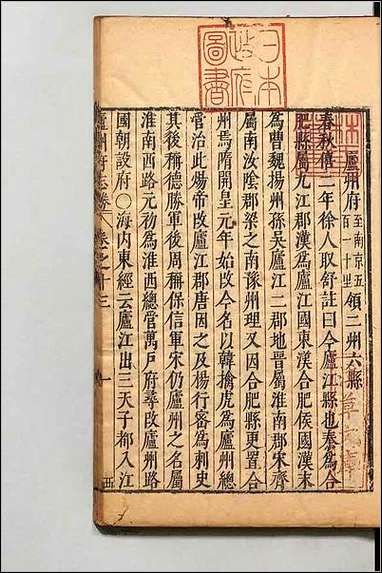 日本
政府
圖書
廬州府至南京五百一十里領二州六縣
春秋僖三年徐人取舒註曰今廬江縣也秦為合
肥縣屬九江郡漢為廬江國東漢合肥侯國漢末
為曹魏揚州孫吳廬江二郡地晉屬淮南郡宋齊
屬南汝陰郡梁之南豫州理又因合肥縣更置合
州焉隋開皇元年始改今名以韓擒虎為廬州總
管治此煬帝改廬江郡唐因之及楊行密為刺史
其後稱德勝軍後周稱保信軍宋仍廬州之名屬
淮南西路元初為淮西總管萬戶府尋改廬州路
國朝設府○海內東經云廬江出三天子都入江
廬州府志 卷之十三 一